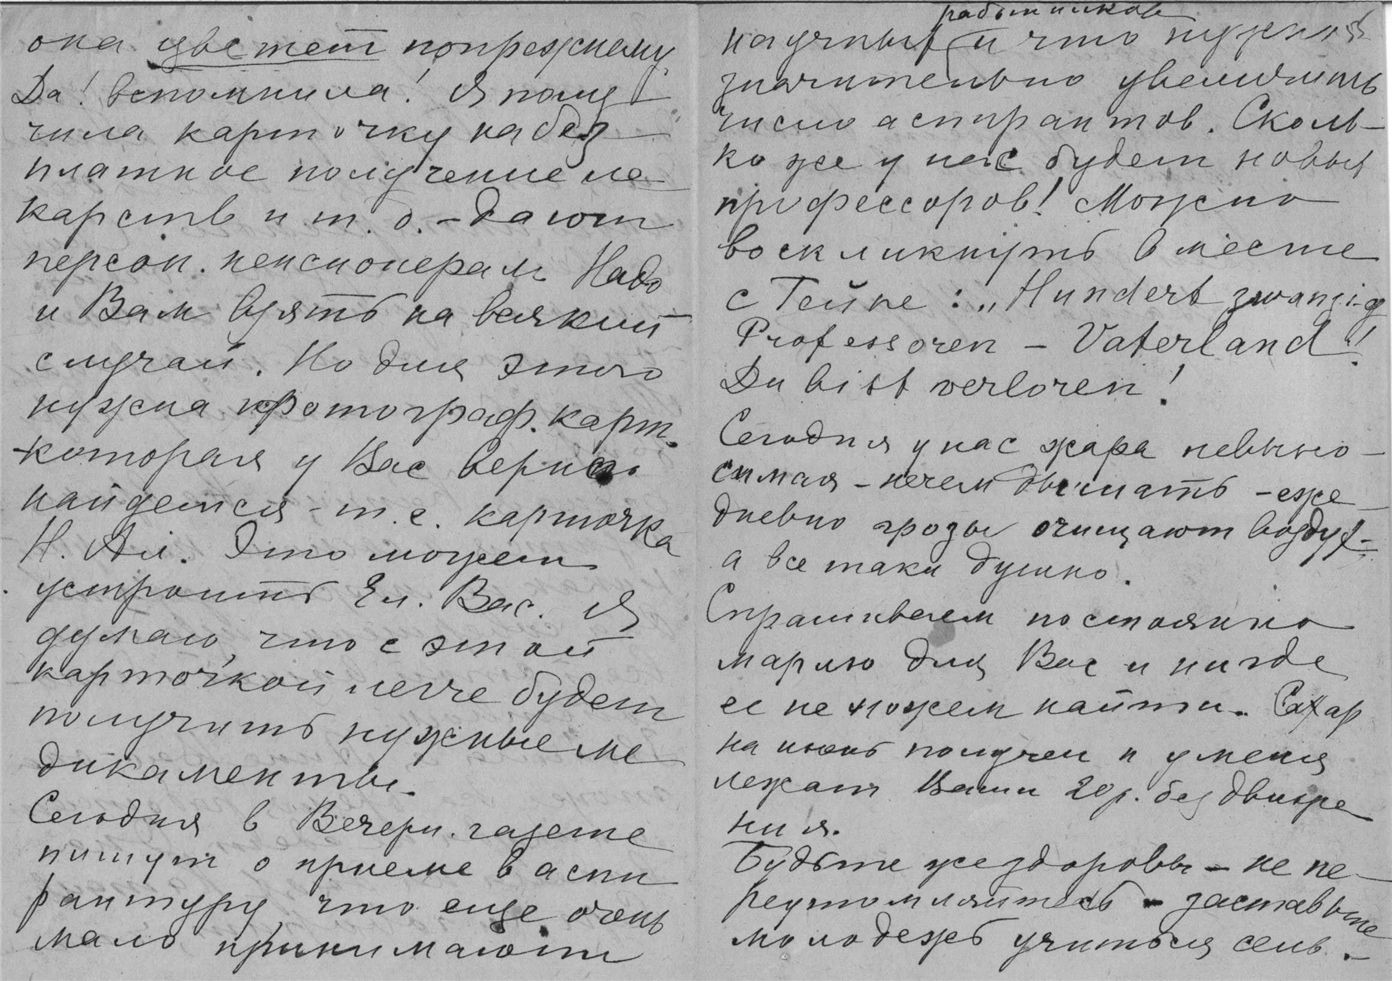 она цветет попрежнему.
Да! вспомнила! Я полу-
чила карточку на без-
платное получение ле-
карств и т. д. – дают
персон. пенсионерам Надо
и Вам взять на всякий
случай. Но для этого
нужна фотограф. карт.
которая у Вас верно
найдется – т. е. карточка
Н. Ал. Это может
устроить Ел. Вас. Я
думаю, что с этой
карточкой легче будет
получить нужные ме
дикаменты.
Сегодня в Вечерн. газете
пишут о приеме в аспи
рантуру, что еще очень
мало принимают
работников
научных и что нужно
значительно увеличить
число аспирантов. Сколь-
ко же у нас будет новых
профессоров! Можно
воскликнуть вместе
с Гейне: „Hundert zwanzig
Professoren – Vaterland!!
Du bist verloren!
Сегодня у нас жара невыно-
симая – нечем дышать – еже-
дневно грозы очищают воздух –
а все таки душно.
Спрашиваем постоянно
марлю для Вас и нигде
ее не можем найти. Сахар
на июнь получен и у меня
лежат Ваши 20 р. без движе
ния.
Будьте же здоровы – не пе-
реутомляйтесь – заставьте
молодежь учиться сель.-